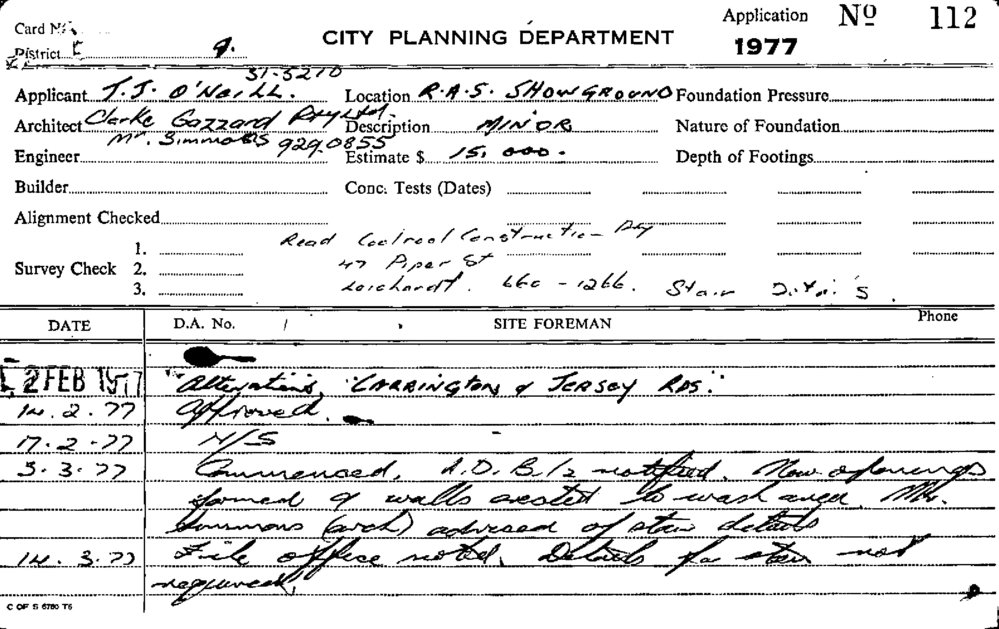 Card No.
District E 9.
CITY PLANNING DEPARTMENT
Application No 112
1977
31-5210
Applicant T.J. O'NEILL. Location R.A.S. SHOWGROUND Foundation Pressure
Architect Clarke Gazzard Pty Ltd. Description MINOR Nature of Foundation
Mr. Simmons 929.0855
Engineer Estimate $ 15,000. Depth of Footings
Builder Conc. Tests (Dates)
Alignment Checked
Read Constructions Pty
1. 47 Piper St
Survey Check 2. Leichardt. 660-1266. Stair Details.
3.
DATE D.A. No. / SITE FOREMAN Phone
2 FEB 1977 "Alterations, "CARRINGTON & JERSEY RDS."
14.2.77 Approved.
17.2.77 N/S
3.3.77 Commenced. A.D.B./2 notified. New openings
formed & walls erected to wash area. Mr.
Simmons (arch) advised of stair details
14.3.77 File office noted. Details for stair not
required.
C OF S 6780 T6